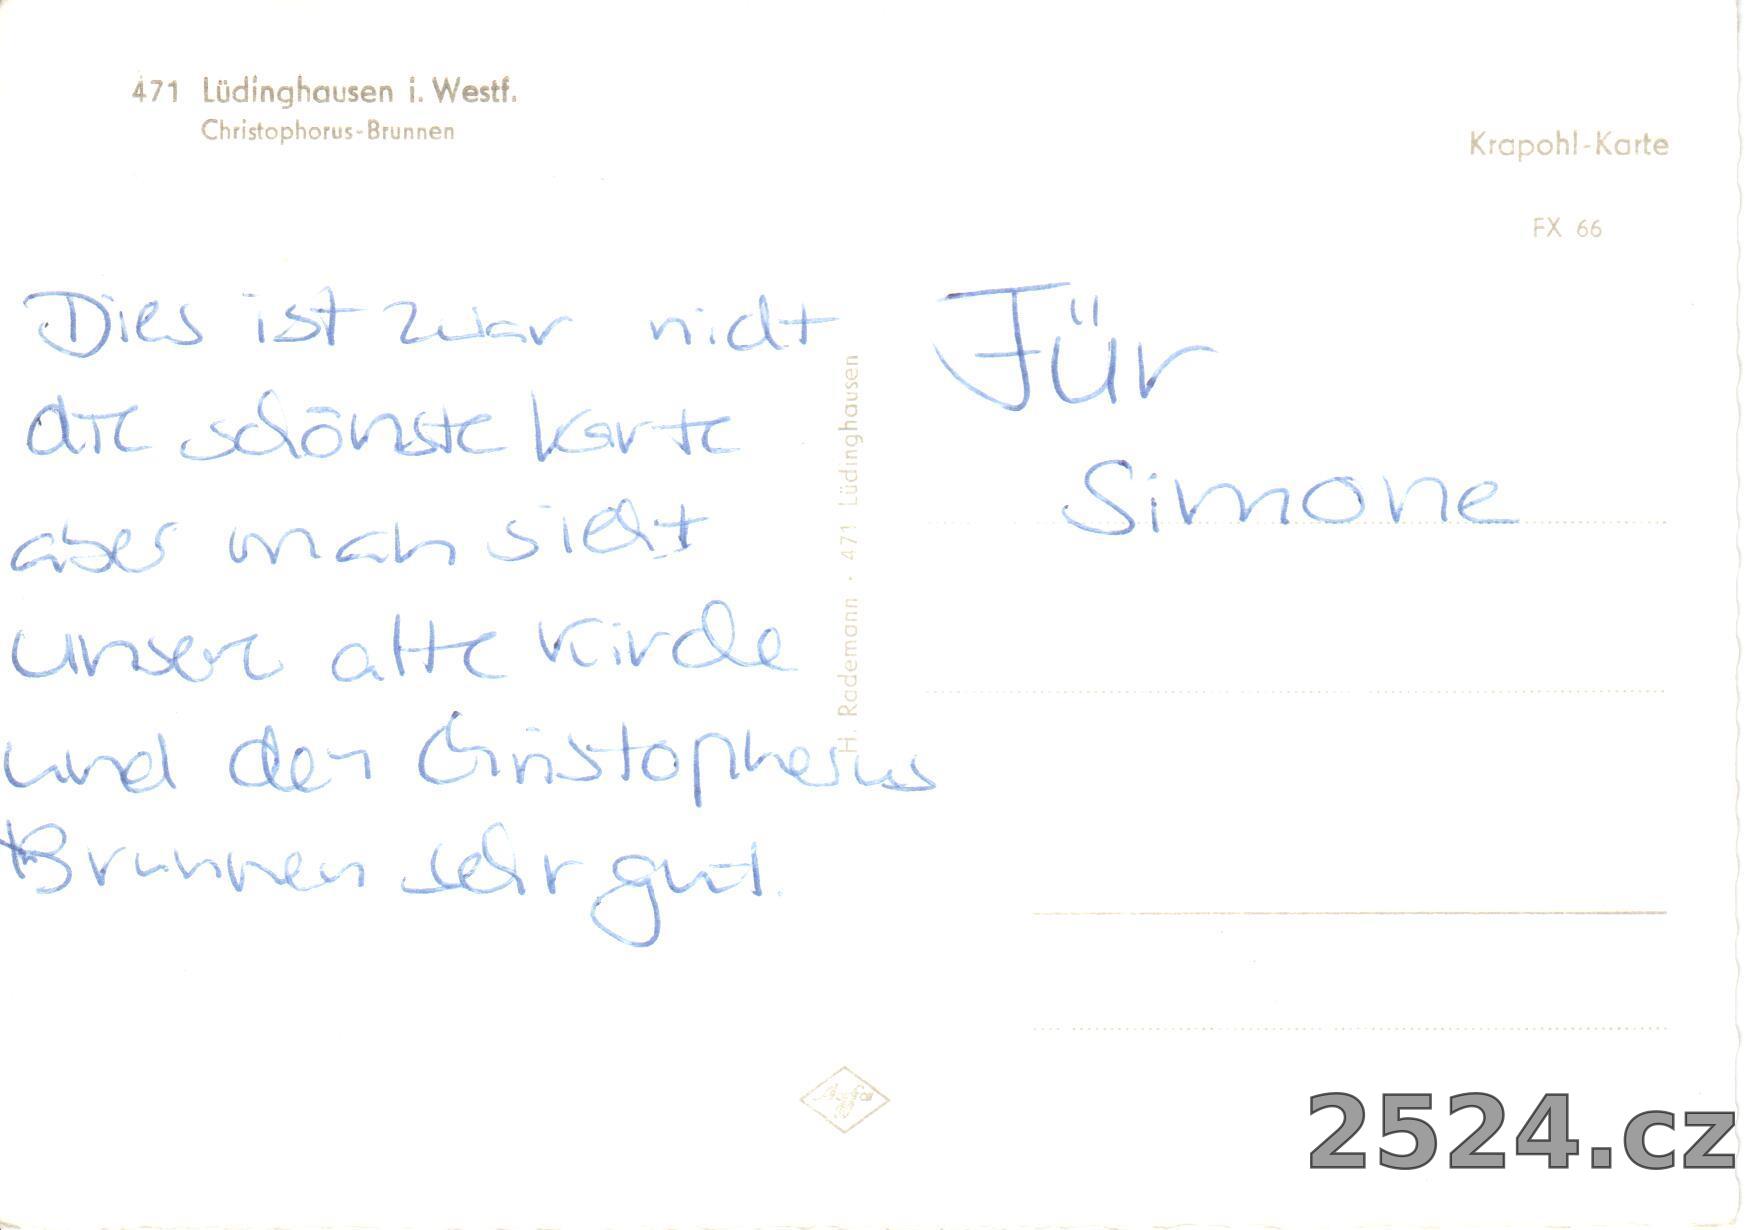 471 Lüdinghausen i. Westf.
Christophorus-Brunnen
Krapohl-Karte
FX 66
Dies ist zwar nicht
die schönste Karte
aber man sieht
unsere alte Kirche
und den Christopherus
Brunnen sehr gut.
H. Rademann · 471 Lüdinghausen
Für
Simone
Agfa
2524.cz